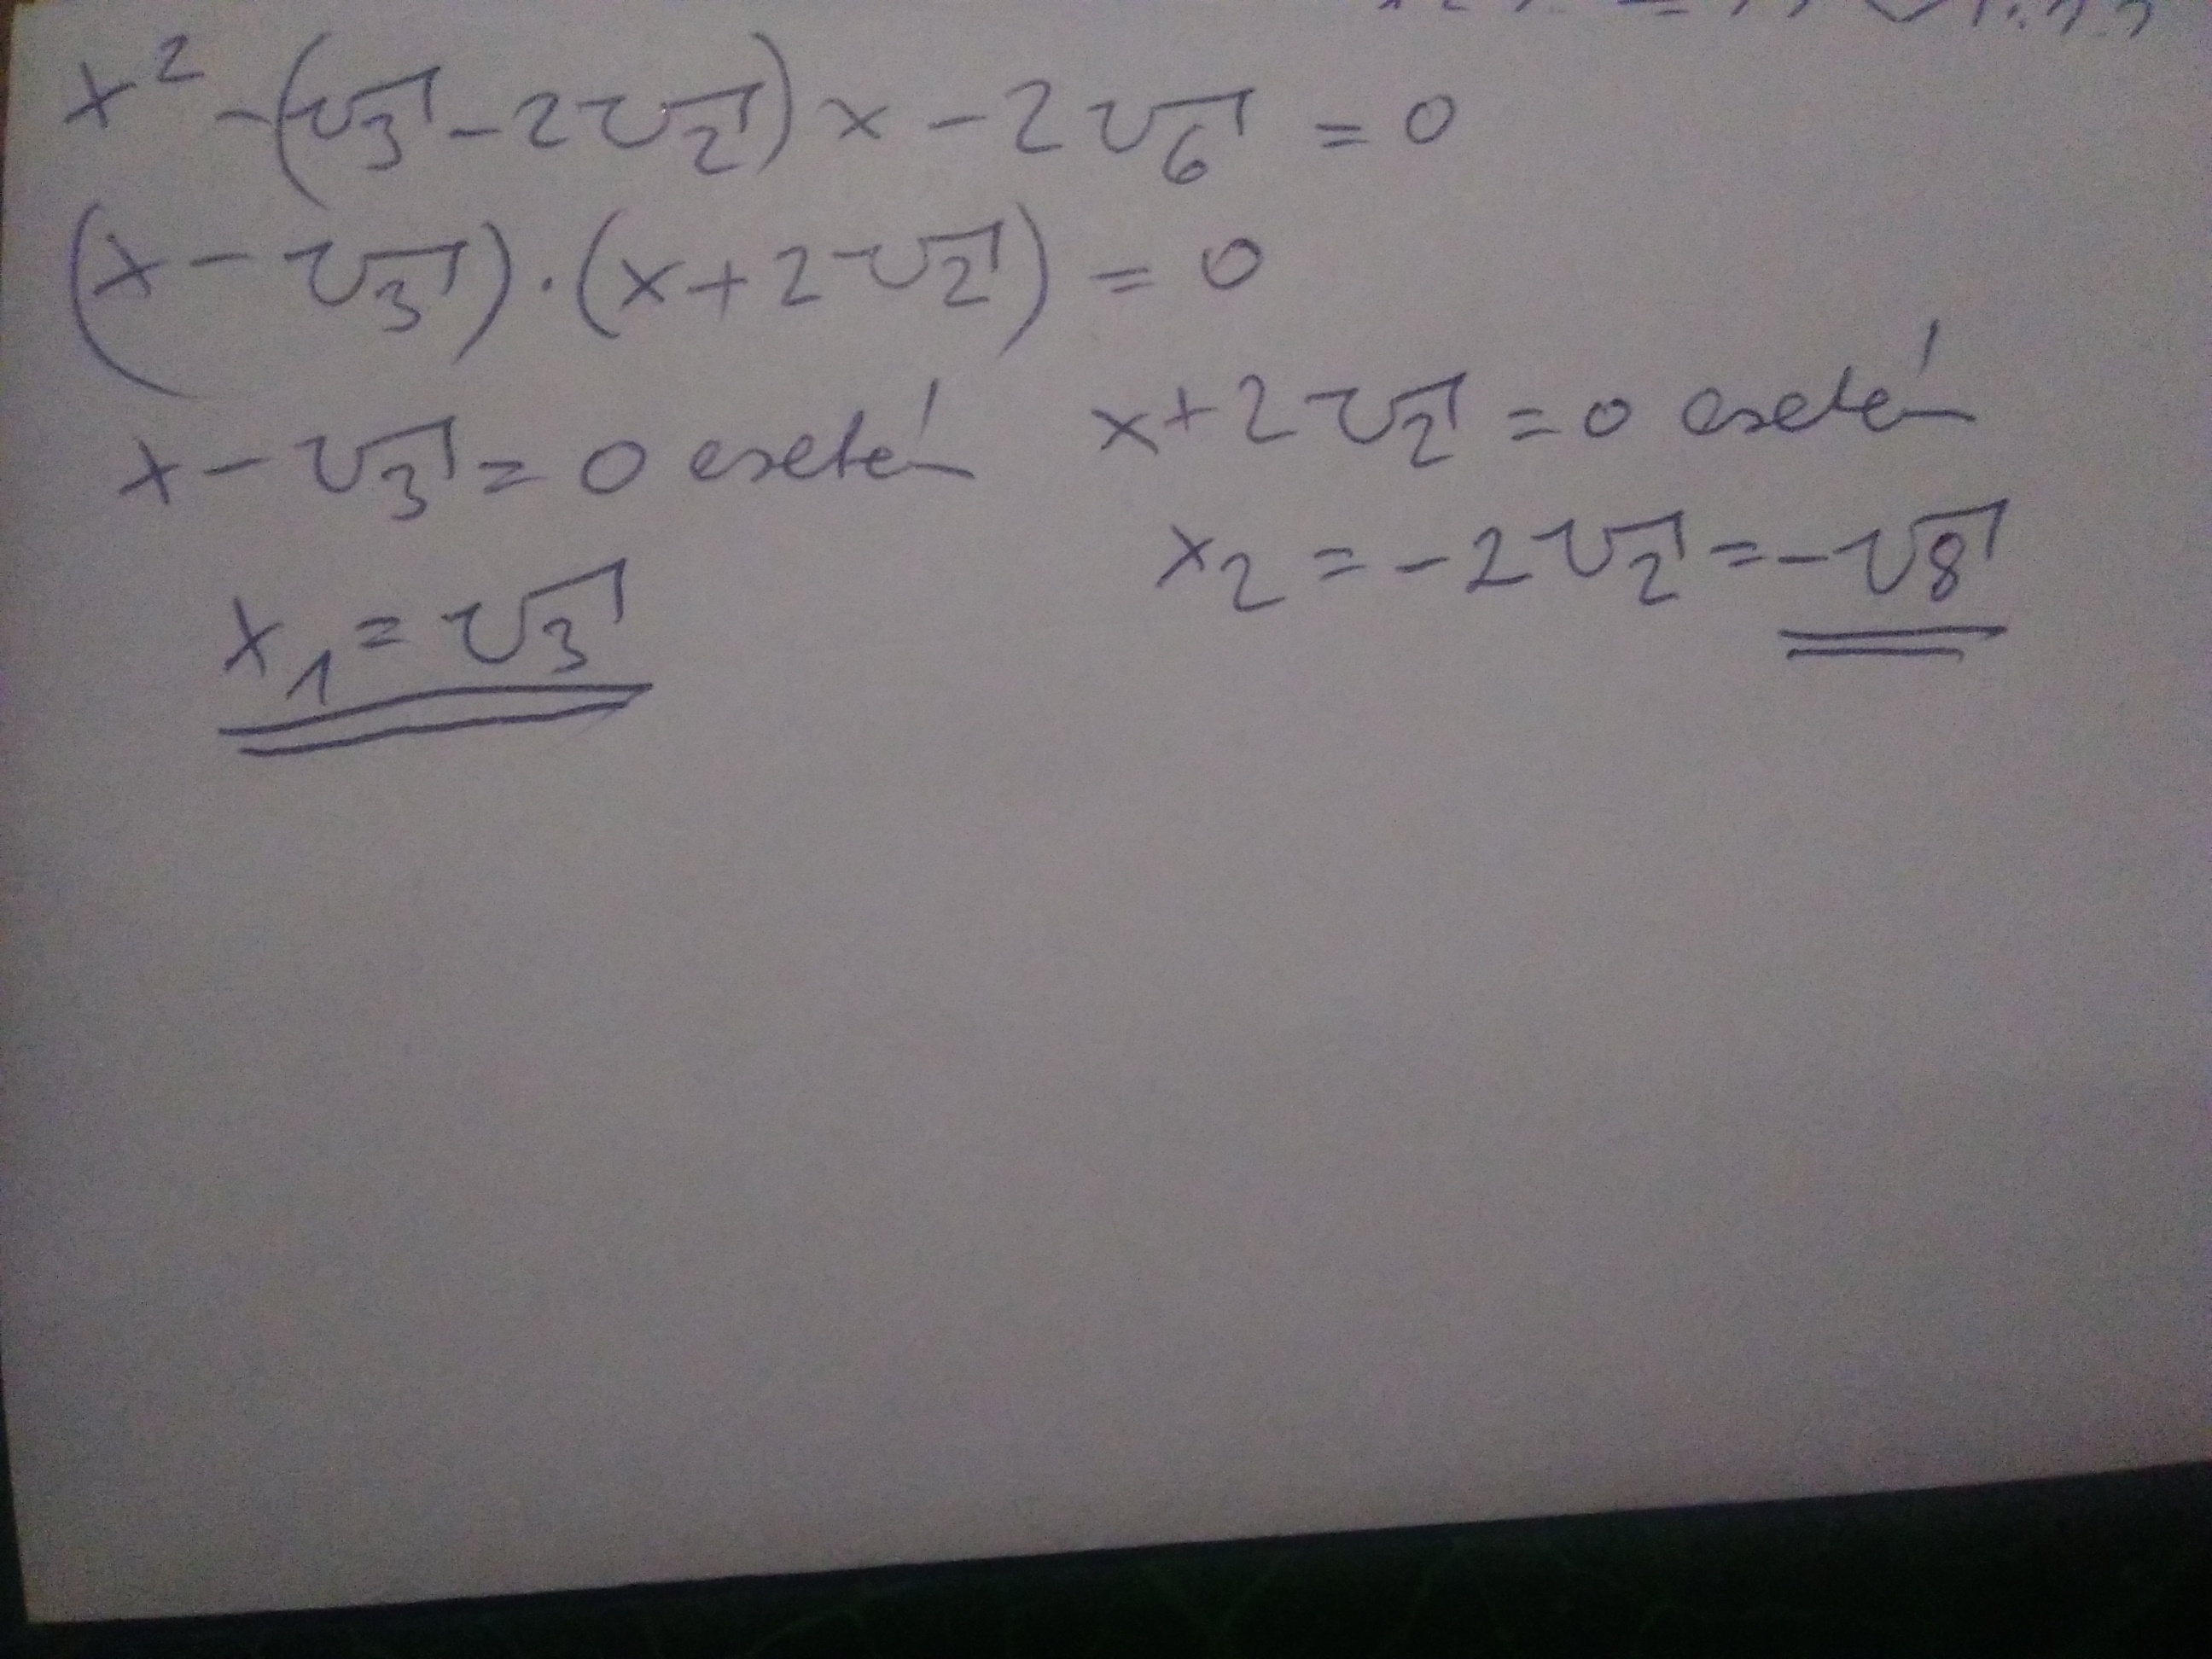 x² - (√3 - 2√2) x - 2√6 = 0
(x - √3) · (x + 2√2) = 0
x - √3 = 0 esetén
x + 2√2 = 0 esetén
x₁ = √3
x₂ = -2√2 = -√8